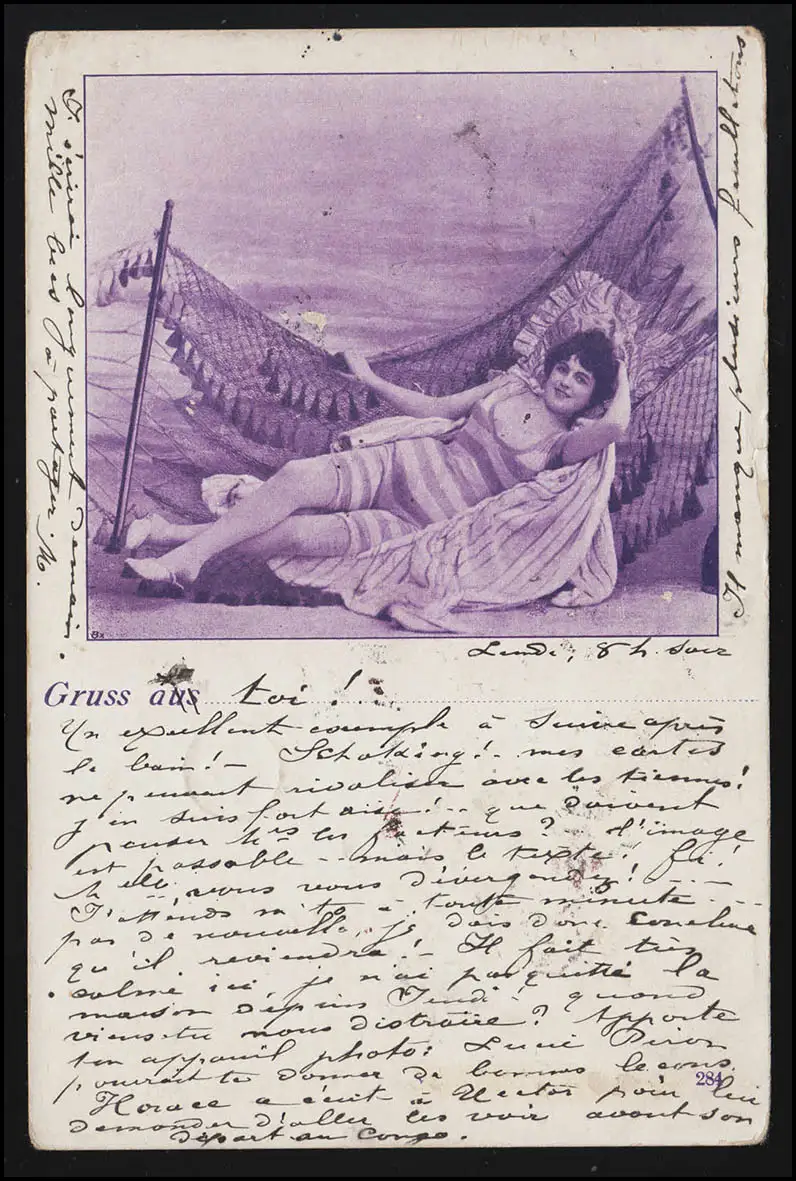 Lundi, 8 h. soir
Gruss aus toi !
Un excellent exemple à suivre après
le bain ! — Schokking ! - mes cartes
ne peuvent rivaliser avec les tiennes !
j'en suis fort aise ! .. que doivent
penser Mrs les facteurs ? - L'image
est passable - .. mais le texte ! fi !
Melle, vous vous dévergondez ! - - -
J'attends à toute minute - - -
pas de nouvelle, je dois donc conclure
qu'il reviendra ! - Il fait très
calme ici, je n'ai pas quitté la
maison depuis Jeudi - quand
viens-tu nous distraire ? Apporte
ton appareil photo : Lucie Piron
pourrait te donner de bonnes leçons.
284
Horace a écrit à Hector pour lui
demander d'aller les voir avant son
départ au Congo.
J' longuement demain.
mille bises à partager. M.
Il manque plusieurs feuilletons
BX